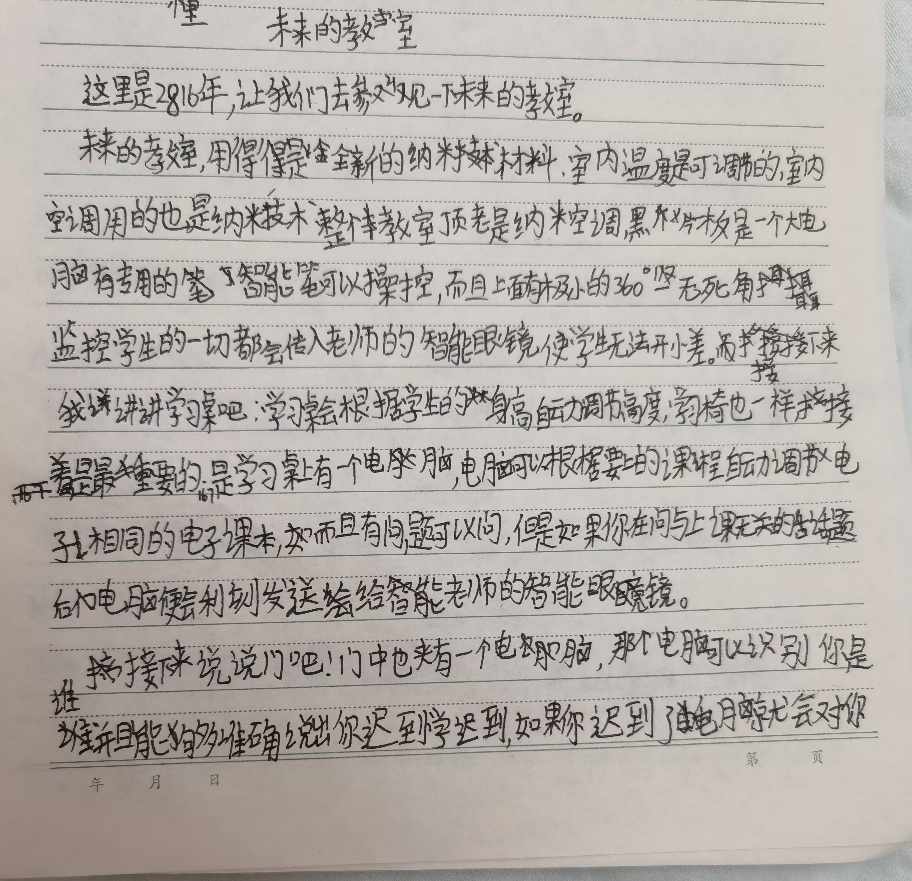 种
未来的教室
这里是2816年,让我们去参观一下未来的教室。
未来的教室,用得是全新的纳米技术材料.室内温度是可调节的,室内
空调用的也是纳米技术 整个教室顶老是纳米空调,黑板是一个大电
脑有专用的智能笔可以操控,而且上面有极小的360°无死角
监控学生的一切都会传入老师的智能眼镜,使学生无法开小差。接下来
接
我讲讲学习桌吧:学习桌会根据学生的身高自动调节高度,学习椅也一样接
着是最重要的:是学习桌上有一个电脑,电脑可以根据要上的课程自动调节电
子相同的电子课本,而且有问题可以问,但是如果你在问与上课无关的话题
的电脑便会利刻发送给智能老师的智能眼镜。
接下来说说门吧!门中也夹有一个电脑,那个电脑可以识别你是
谁
谁并且能够准确说出你迟到学迟到,如果你迟到了电脑就会对你
年 月 日
第 页